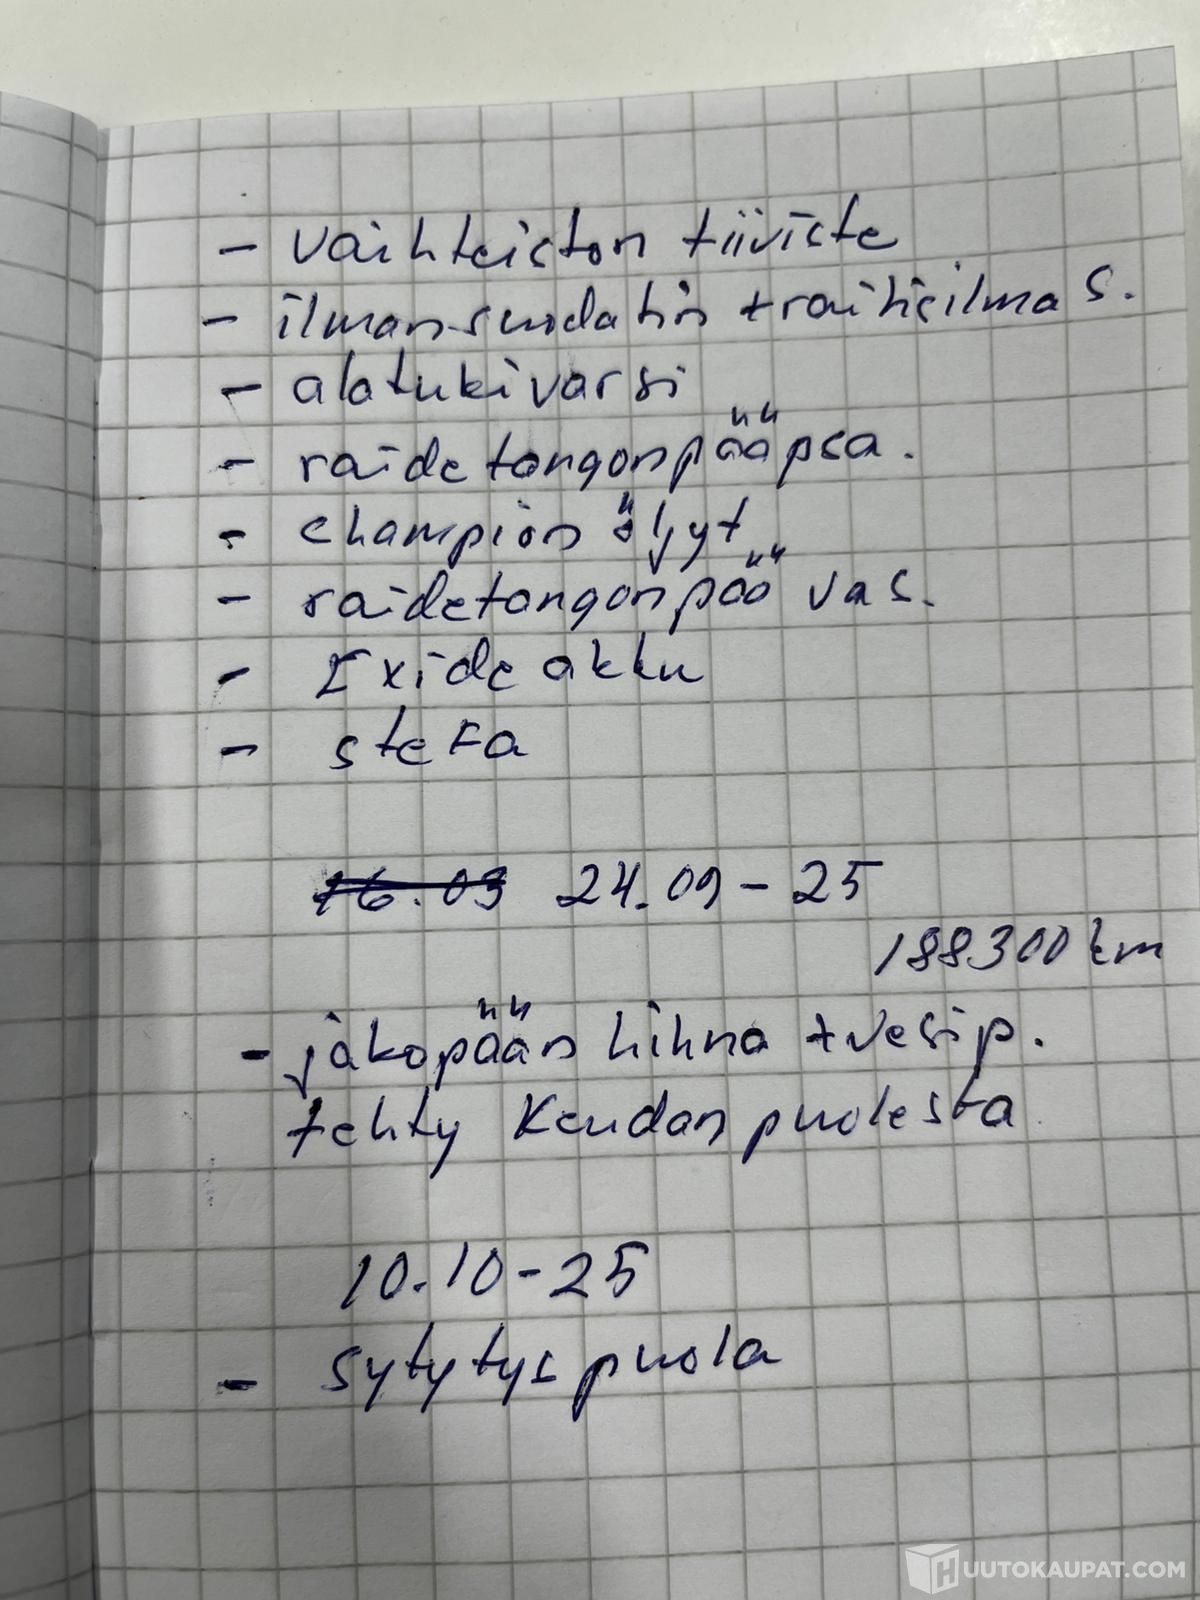 - vaihteiston tiiviste
- ilmansuodatin + raitisilma s.
- alatukivarsi
- raidetangonpää psa.
- champion öljyt
- raidetangonpää vas.
- Exide akku
- stefa
16.09 24.09 - 25
188300 km
- jakopään hihna + vesip.
tehty Keudan puolesta
10.10 - 25
- sytytyspuola
HUUTOKAUPAT.COM